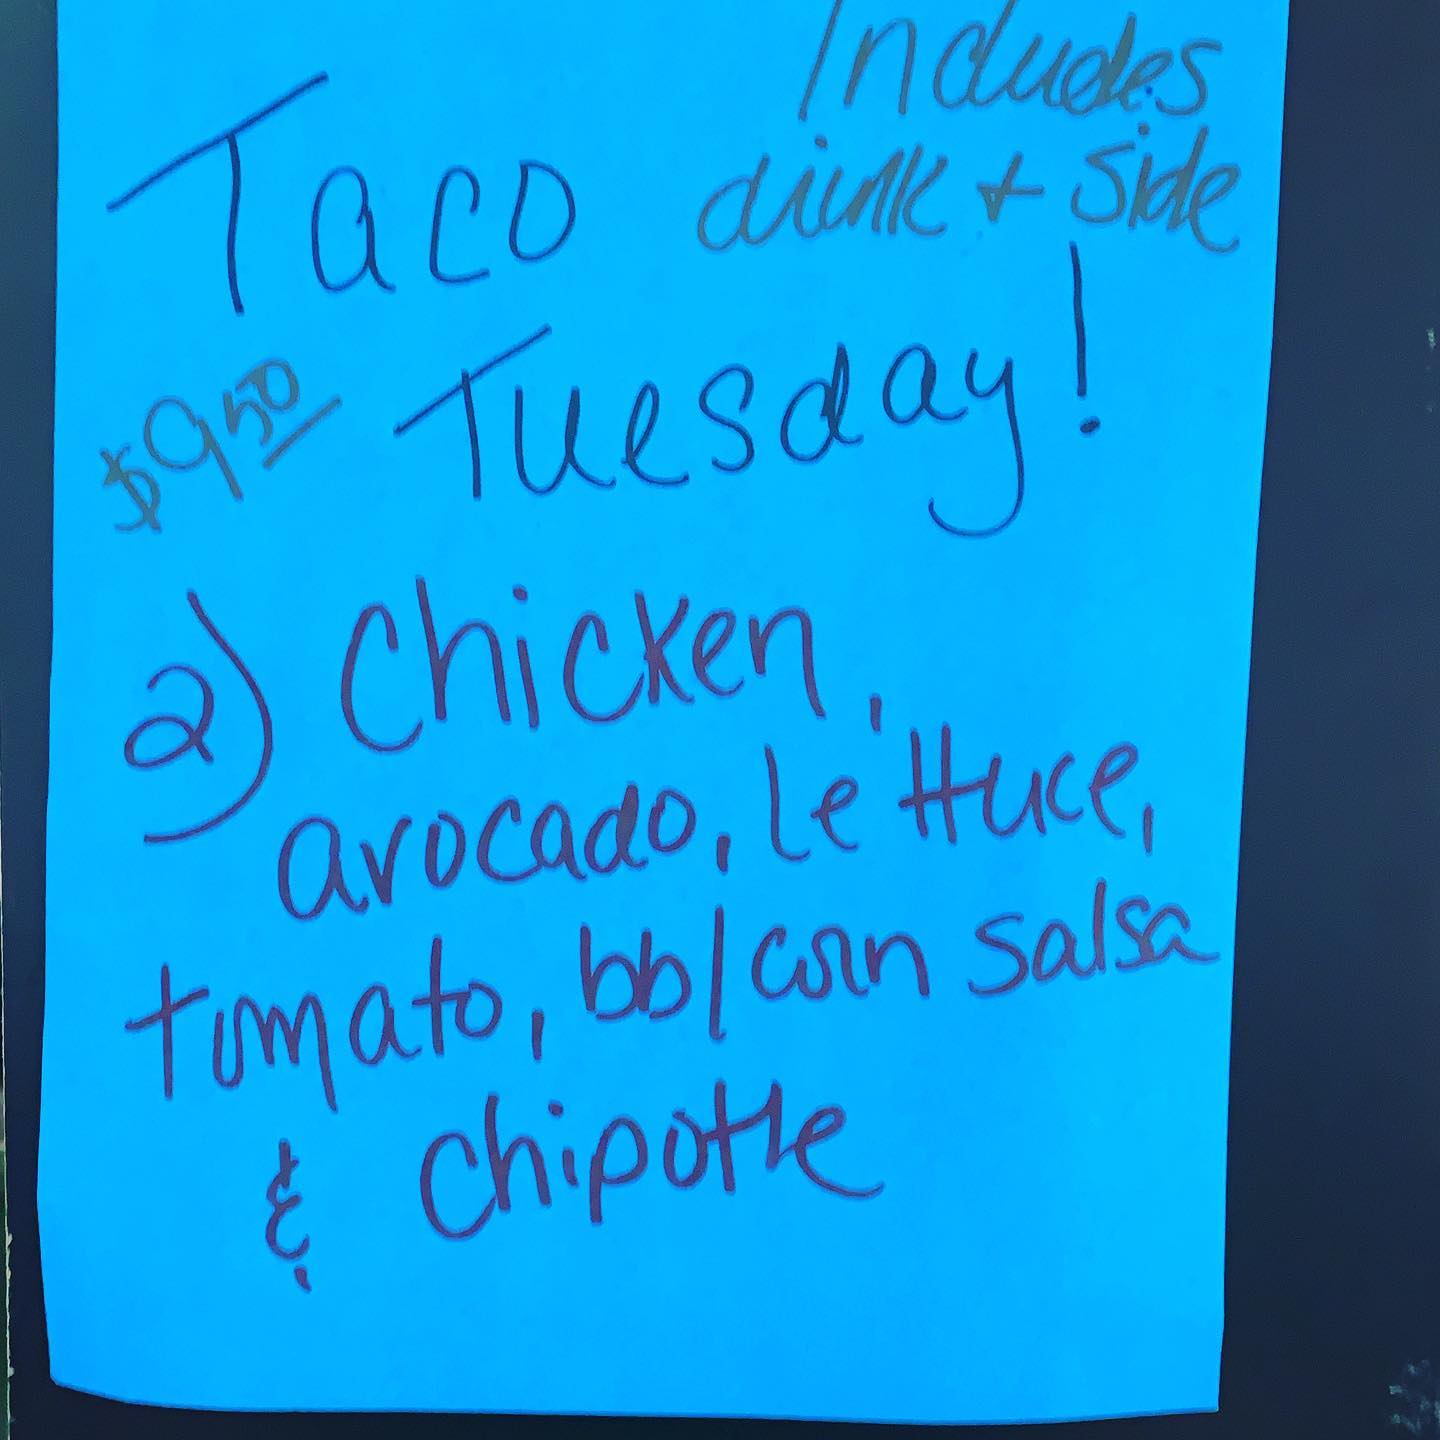 Includes
drink + side
Taco
$9.50
Tuesday!
2) Chicken,
avocado, lettuce,
tomato, bb/corn salsa
& chipotle